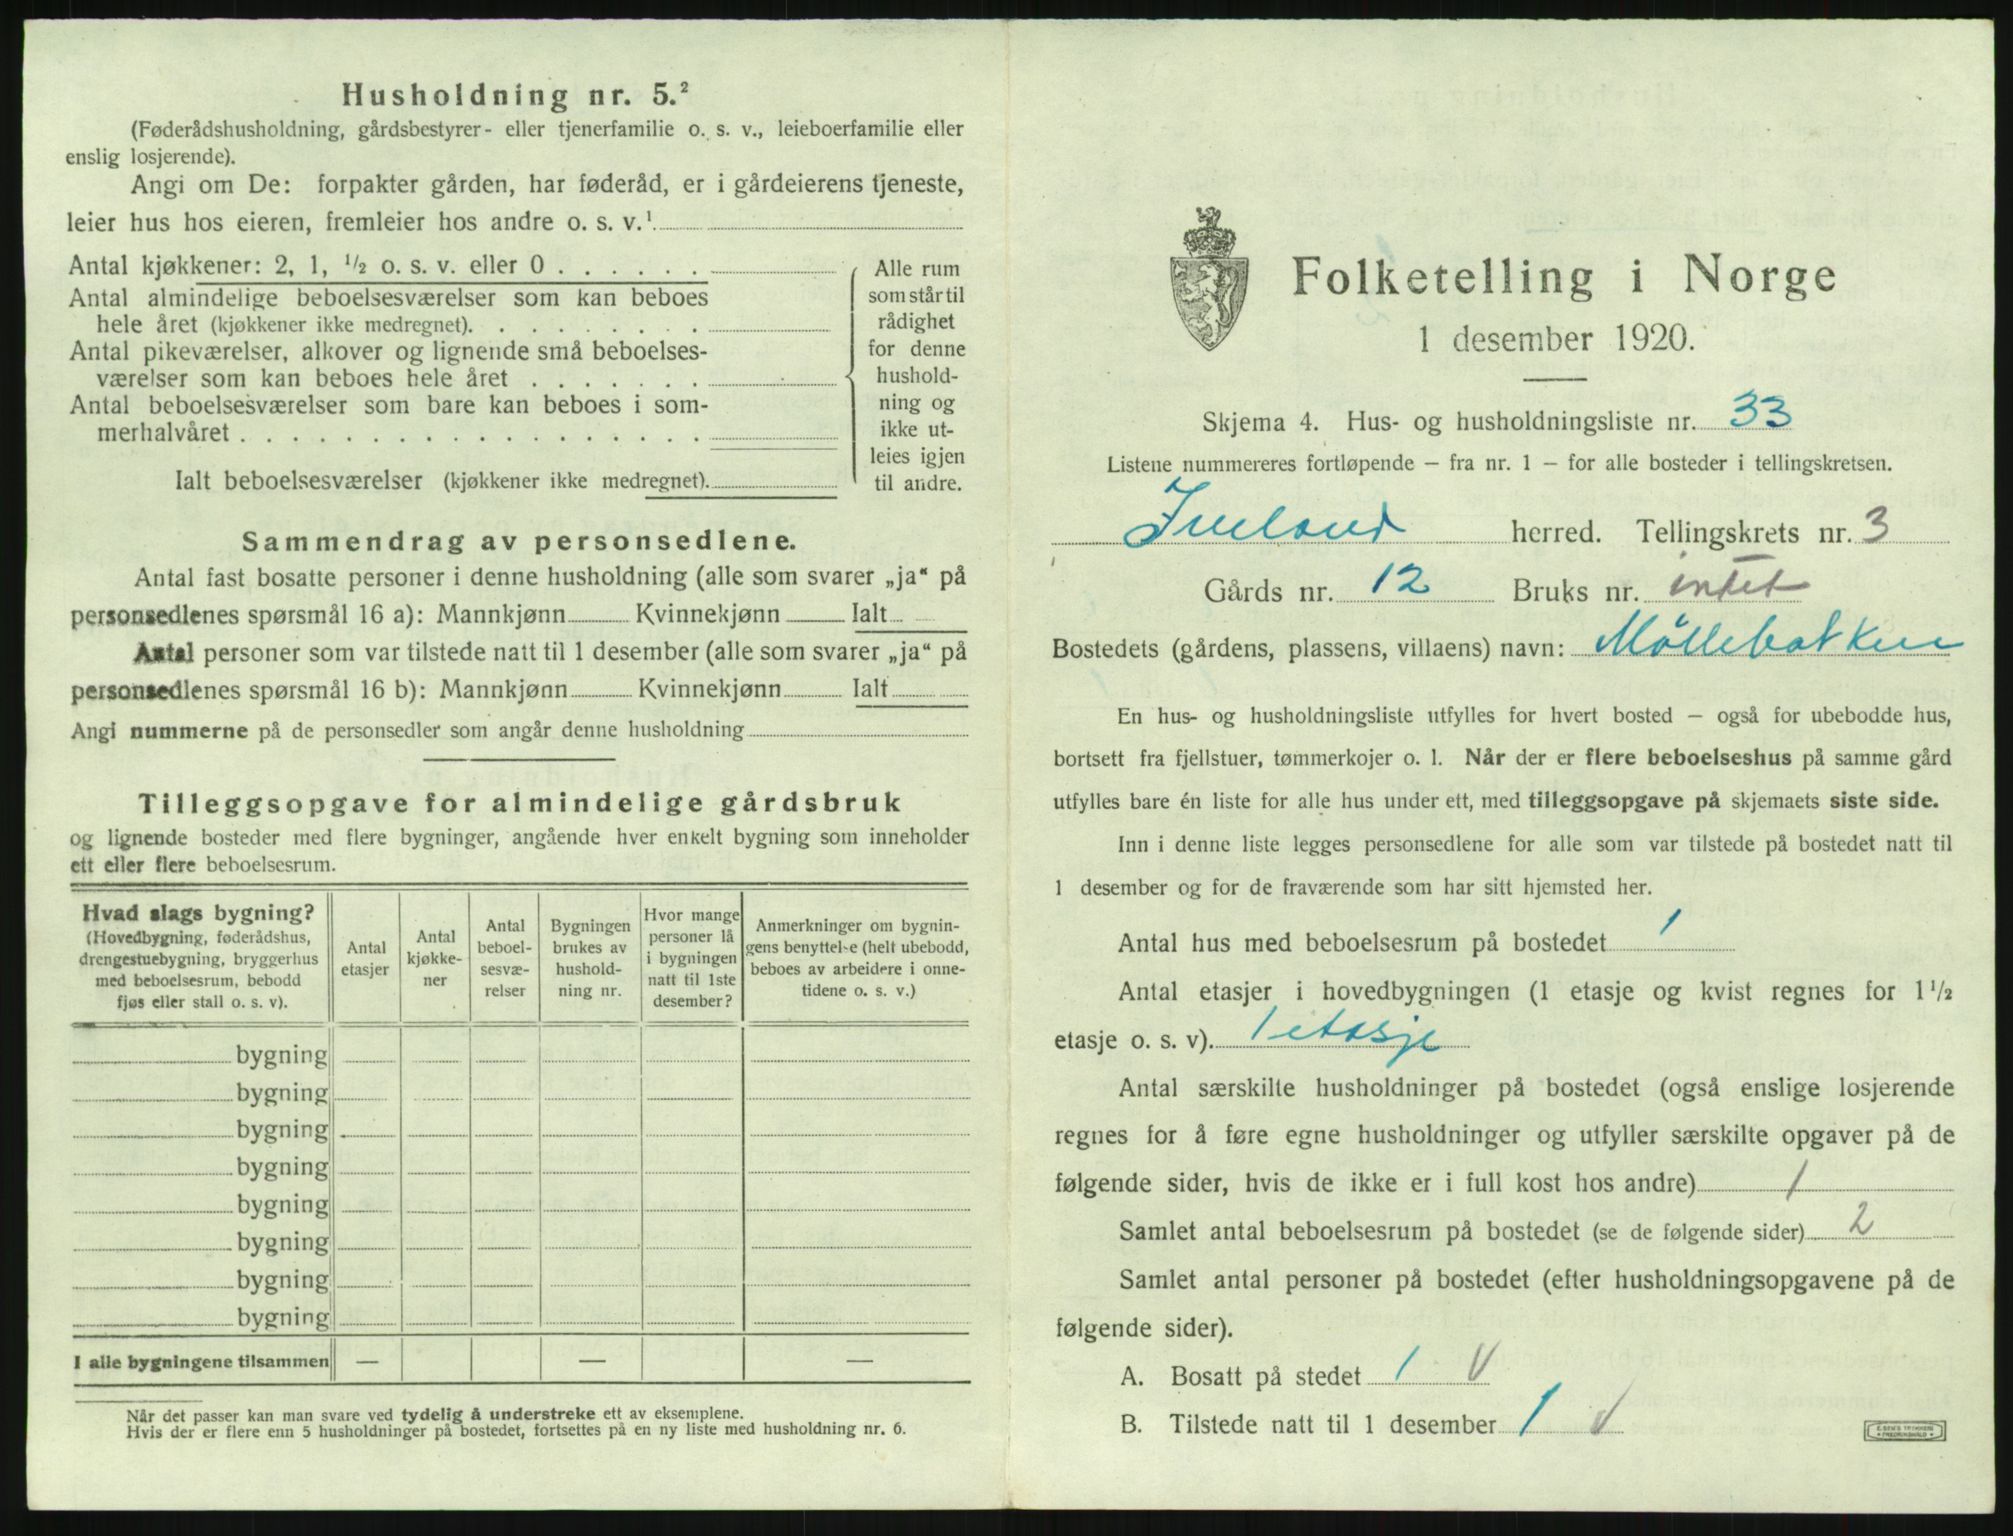 Husholdning nr. 5.²
(Føderådshusholdning, gårdsbestyrer- eller tjenerfamilie o. s. v., leieboerfamilie eller
enslig losjerende).
Angi om De: forpakter gården, har føderåd, er i gårdeierens tjeneste,
leier hus hos eieren, fremleier hos andre o. s. v.¹
Antal kjøkkener: 2, 1, ½ o. s. v. eller 0 . . . . . .
Antal almindelige beboelsesværelser som kan beboes
hele året (kjøkkener ikke medregnet). . . . . . . . .
Antal pikeværelser, alkover og lignende små beboelses-
værelser som kan beboes hele året . . . . . . .
Antal beboelsesværelser som bare kan beboes i som-
merhalvåret . . . . . . . . . . . . . . . . . .
Ialt beboelsesværelser (kjøkkener ikke medregnet).
Alle rum
som står til
rådighet
for denne
hushold-
ning og
ikke ut-
leies igjen
til andre.
Sammendrag av personsedlene.
Antal fast bosatte personer i denne husholdning (alle som svarer „ja“ på
personsedlenes spørsmål 16 a): Mannkjønn Kvinnekjønn Ialt
Antal personer som var tilstede natt til 1 desember (alle som svarer „ja“ på
personsedlenes spørsmål 16 b): Mannkjønn Kvinnekjønn Ialt
Angi nummerne på de personsedler som angår denne husholdning
Tilleggsopgave for almindelige gårdsbruk
og lignende bosteder med flere bygninger, angående hver enkelt bygning som inneholder
ett eller flere beboelsesrum.
Hvad slags bygning?
(Hovedbygning, føderådshus,
drengestuebygning, bryggerhus
med beboelsesrum, bebodd
fjøs eller stall o. s. v).
Antal
etasjer
Antal
kjøkke-
ner
Antal
beboel-
sesvæ-
relser
Bygningen
brukes av
hushold-
ning nr.
Hvor mange
personer lå
i bygningen
natt til 1ste
desember?
Anmerkninger om bygnin-
gens benyttelse (helt ubebodd,
beboes av arbeidere i onne-
tidene o. s. v.)
bygning
bygning
bygning
bygning
bygning
bygning
bygning
bygning
I alle bygningene tilsammen — — —
Når det passer kan man svare ved tydelig å understreke ett av eksemplene.
Hvis der er flere enn 5 husholdninger på bostedet, fortsettes på en ny liste med husholdning nr. 6.
Folketelling i Norge
1 desember 1920.
Skjema 4. Hus- og husholdningsliste nr. 33
Listene nummereres fortløpende – fra nr. 1 – for alle bosteder i tellingskretsen.
Iveland herred. Tellingskrets nr. 3
Gårds nr. 12 Bruks nr. intet
Bostedets (gårdens, plassens, villaens) navn: Möllebakken
En hus- og husholdningsliste utfylles for hvert bosted – også for ubebodde hus,
bortsett fra fjellstuer, tømmerkojer o. l. Når der er flere beboelseshus på samme gård
utfylles bare én liste for alle hus under ett, med tilleggsopgave på skjemaets siste side.
Inn i denne liste legges personsedlene for alle som var tilstede på bostedet natt til
1 desember og for de fraværende som har sitt hjemsted her.
Antal hus med beboelsesrum på bostedet 1
Antal etasjer i hovedbygningen (1 etasje og kvist regnes for 1½
etasje o. s. v). 1 etasje
Antal særskilte husholdninger på bostedet (også enslige losjerende
regnes for å føre egne husholdninger og utfyller særskilte opgaver på de
følgende sider, hvis de ikke er i full kost hos andre) 1
Samlet antal beboelsesrum på bostedet (se de følgende sider) 2
Samlet antal personer på bostedet (efter husholdningsopgavene på de
følgende sider).
A. Bosatt på stedet 1 V
B. Tilstede natt til 1 desember 1 V